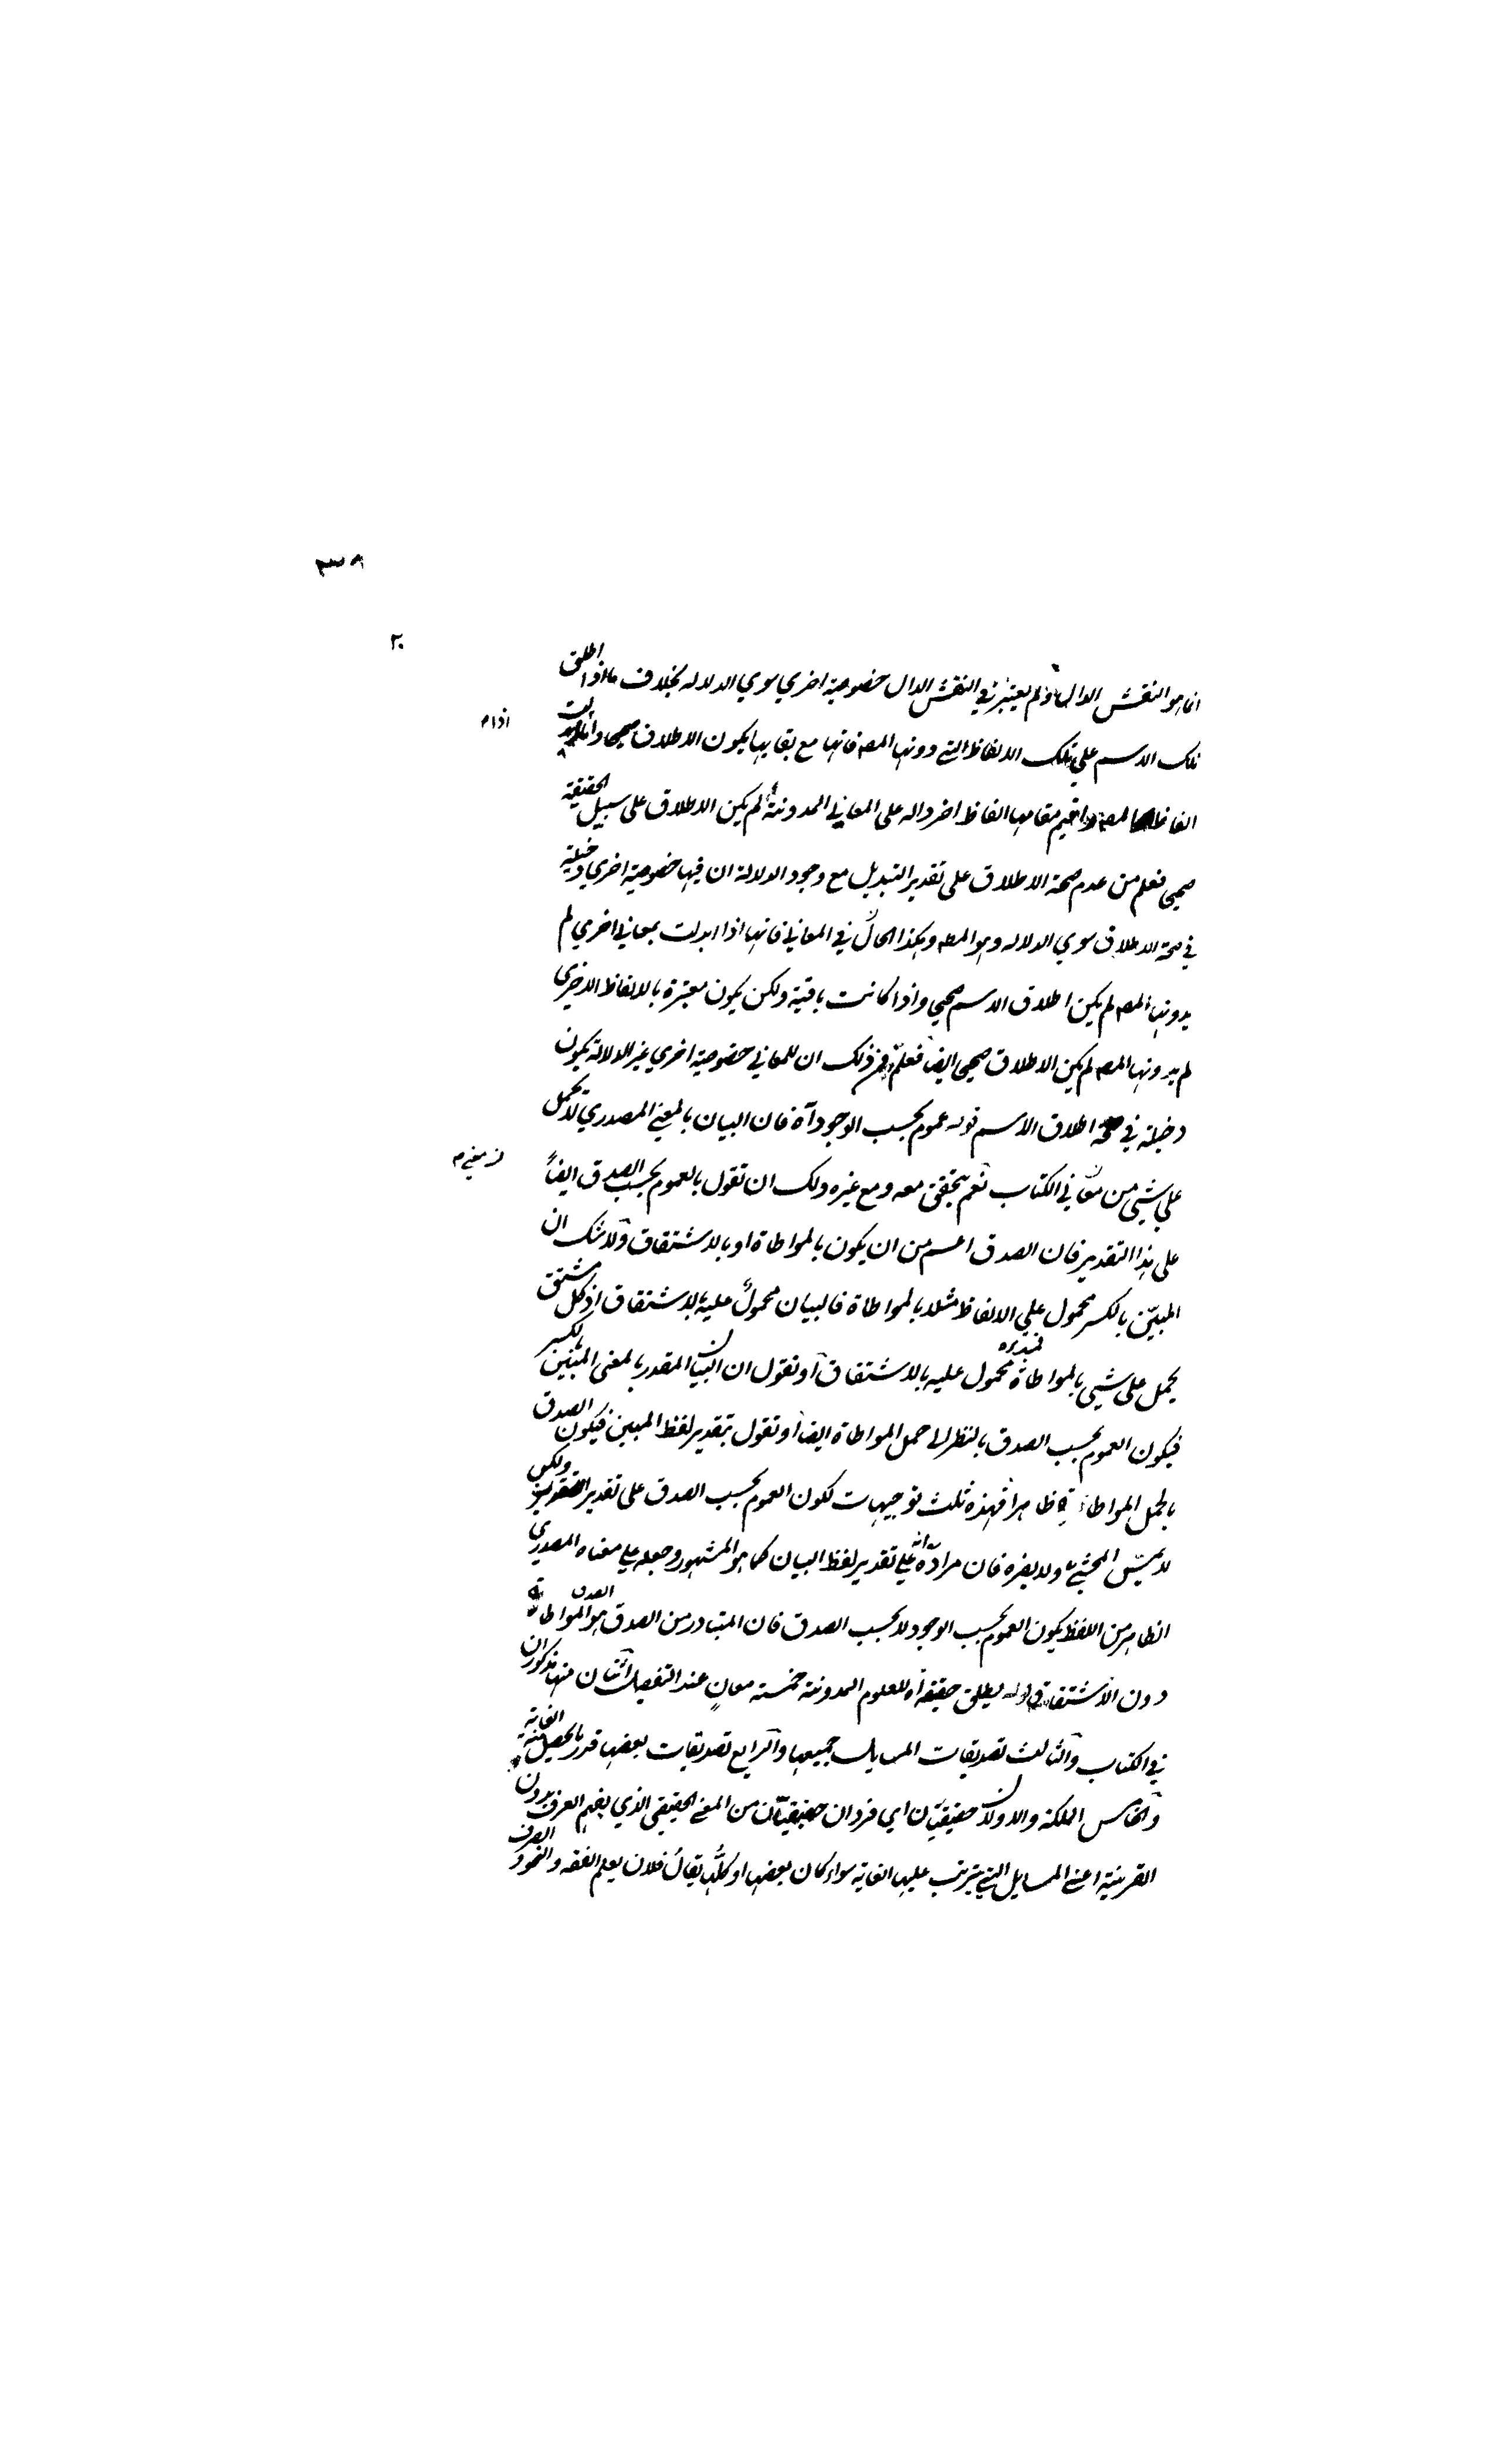 ٣٨
٢٠
انما هو النقش الدال ولم يعتبر في النقش الدال خصوصية اخري سوي الدلالة بخلاف ما اذا اطلق
تلك الاسم علي تلك الالفاظ التي دونها المصـ فانها مع بقايها يكون الاطلاق صحيحا واذا بدلت
اذا م
الفاظ المصـ واقيم مقامها الفاظ اخر داله على المعاني المدونة لم يكن الاطلاق على سبيل الحقيقة
صحيحا فعلم من عدم صحة الاطلاق على تقدير التبديل مع وجود الدلالة ان فيها خصوصية اخري دخيلة
في صحة الاطلاق سوي الدلالة وهو المصـ وهكذا الحال في المعاني فانها اذا ابدلت بمعاني اخري لم
يدونها المصـ لم يكن اطلاق الاسم صحيحا واذا كانت باقية ولكن يكون معتبرة بالالفاظ الاخري
لم يدونها المصـ لم يكن الاطلاق صحيحا ايضا فعلم من ذلك ان للمعاني خصوصية اخري غير الدلالة يكون
دخيلة في صحة اطلاق الاسم قوله عموم بحسب الوجود آه فان البيان بالمعني المصدري لا يحمل
علي شيي من معاني الكتاب نعم يتحقق معه ومع غيره ولك ان تقول بالعموم بحسب الصدق ايضا
على هذا التقدير فان الصدق اعم من ان يكون بالمواطاة او بالاشتقاق ولا شك ان
المبيّن بالكسر محمول علي الالفاظ مثلا بالمواطاة فالبيان محمول عليه بالاشتقاق اذ كل مشتق
يحمل على شيي بالمواطاة فمبدءه محمول عليه بالاشتقاق او نقول ان البيان المقدر بالمعنى المبين بالكسر
فيكون العموم بحسب الصدق بالنظر الى حمل المواطاة ايضا او تقول بتقدير لفظ المبين فيكون الصدق
بالحمل المواطاة ظاهرا فهذه ثلث توجيهات لكون العموم بحسب الصدق على تقدير ولكن
لا يمس المحشي ولا يضره فان مراده انه علي تقدير لفظ البيان كما هو المشهور وجعله علي معناه المصدري
الظاهر من اللفظ يكون العموم بحسب الوجود لا بحسب الصدق فان المتبادر من الصدق هو الصدق المواطاة
دون الاشتقاقي قوله يطلق حقيقة آه للعلوم المدونة خمسة معانٍ عند التفصيل اثنان منها مذكوران
في الكتاب والثالث تصديقات المسايل جميعها والرابع تصديقات بعضها قدر ما يحصل منه الغاية
والخامس الملكة والاولان حقيقيان اي فردان حقيقيان من المعنى الحقيقي الذي يفهم العرف بدون
القرينة اعني المسايل التي يترتب عليها الغاية سواء كان بعضها او كلها يقال فلان يعلم الفقه والنحو والصرف